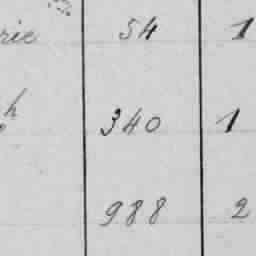 rie 54 1
h 340 1
988 2